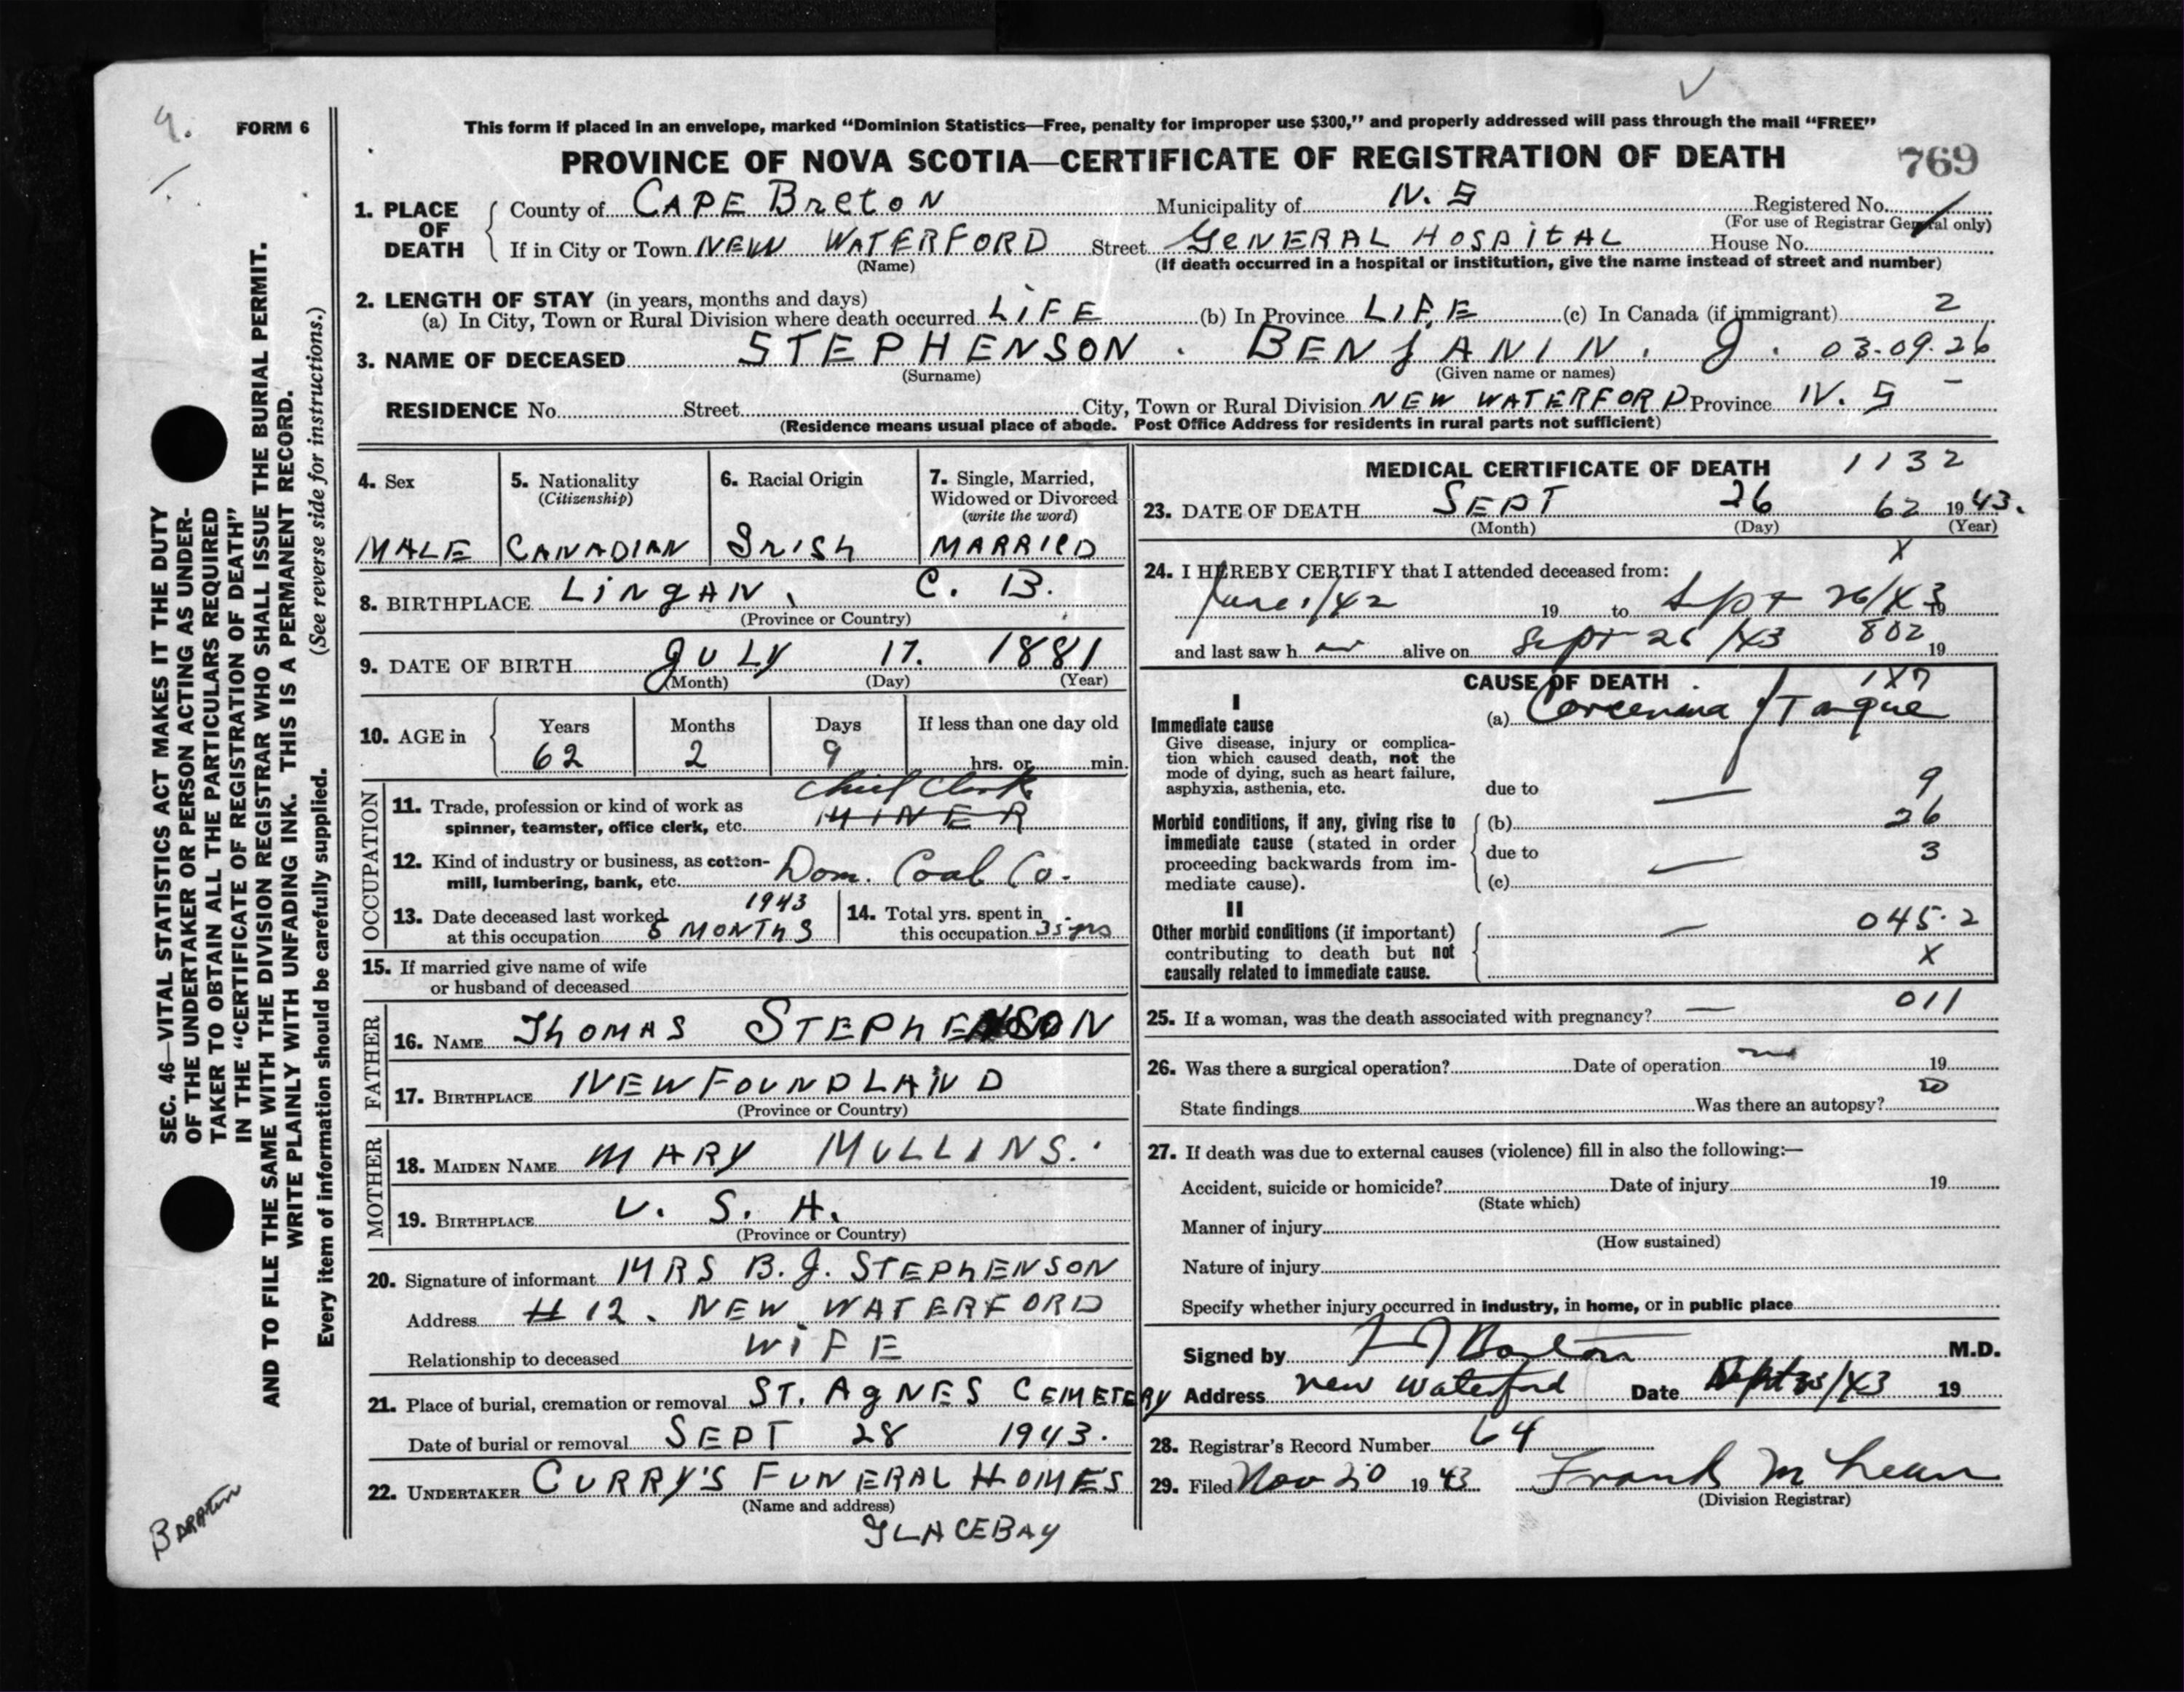 9.
FORM 6
This form if placed in an envelope, marked “Dominion Statistics—Free, penalty for improper use $300,” and properly addressed will pass through the mail “FREE”
PROVINCE OF NOVA SCOTIA—CERTIFICATE OF REGISTRATION OF DEATH 769
1. PLACE OF DEATH
County of CAPE BRETON Municipality of N. S Registered No.
(For use of Registrar General only)
If in City or Town NEW WATERFORD Street GENERAL HOSPITAL House No.
(Name) (If death occurred in a hospital or institution, give the name instead of street and number)
2. LENGTH OF STAY (in years, months and days)
(a) In City, Town or Rural Division where death occurred LIFE (b) In Province LIFE (c) In Canada (if immigrant) 2
3. NAME OF DECEASED STEPHENSON . BENJAMIN . J . 03-09-26
(Surname) (Given name or names)
RESIDENCE No. Street City, Town or Rural Division NEW WATERFORD Province N. S
(Residence means usual place of abode. Post Office Address for residents in rural parts not sufficient)
4. Sex
MALE
5. Nationality
(Citizenship)
CANADIAN
6. Racial Origin
IRISH
7. Single, Married,
Widowed or Divorced
(write the word)
MARRIED
8. BIRTHPLACE LINGAN, C. B.
(Province or Country)
9. DATE OF BIRTH JULY 17. 1881
(Month) (Day) (Year)
10. AGE in
Years Months Days If less than one day old
62 2 9 hrs. or min.
OCCUPATION
Chief Clerk
11. Trade, profession or kind of work as
spinner, teamster, office clerk, etc. MINER
12. Kind of industry or business, as cotton-
mill, lumbering, bank, etc. Dom. Coal Co.
13. Date deceased last worked 1943
at this occupation 5 MONTHS
14. Total yrs. spent in
this occupation 35 yrs
15. If married give name of wife
or husband of deceased
FATHER
16. NAME THOMAS STEPHENSON
17. BIRTHPLACE NEWFOUNDLAND
(Province or Country)
MOTHER
18. MAIDEN NAME MARY MULLINS.
19. BIRTHPLACE U. S. A.
(Province or Country)
20. Signature of informant MRS B. J. STEPHENSON
Address # 12. NEW WATERFORD
Relationship to deceased WIFE
21. Place of burial, cremation or removal ST. AGNES CEMETERY
Date of burial or removal SEPT 28 1943.
22. UNDERTAKER CURRY'S FUNERAL HOMES
(Name and address)
GLACEBAY
MEDICAL CERTIFICATE OF DEATH 1132
23. DATE OF DEATH SEPT 26 62 1943.
(Month) (Day) (Year)
X
24. I HEREBY CERTIFY that I attended deceased from:
June 1/42 19 to Sept 26/43 19
and last saw h alive on Sept 26/43 802 19
CAUSE OF DEATH 1X7
I
Immediate cause
Give disease, injury or complica-
tion which caused death, not the
mode of dying, such as heart failure,
asphyxia, asthenia, etc.
(a) Carcenoma of Tongue
due to — 9
Morbid conditions, if any, giving rise to
immediate cause (stated in order
proceeding backwards from im-
mediate cause).
(b) 26
due to — 3
(c)
II
Other morbid conditions (if important)
contributing to death but not
causally related to immediate cause.
— 045.2
X
25. If a woman, was the death associated with pregnancy? — 011
26. Was there a surgical operation? Date of operation no 19
State findings Was there an autopsy?
27. If death was due to external causes (violence) fill in also the following:—
Accident, suicide or homicide? Date of injury 19
(State which)
Manner of injury
(How sustained)
Nature of injury
Specify whether injury occurred in industry, in home, or in public place
Signed by M.D.
Address New Waterford Date /43 19
28. Registrar's Record Number 64
29. Filed Nov 20 1943 Frank McLean
(Division Registrar)
SEC. 46—VITAL STATISTICS ACT MAKES IT THE DUTY
OF THE UNDERTAKER OR PERSON ACTING AS UNDER-
TAKER TO OBTAIN ALL THE PARTICULARS REQUIRED
IN THE “CERTIFICATE OF REGISTRATION OF DEATH”
AND TO FILE THE SAME WITH THE DIVISION REGISTRAR WHO SHALL ISSUE THE BURIAL PERMIT.
WRITE PLAINLY WITH UNFADING INK. THIS IS A PERMANENT RECORD.
Every item of information should be carefully supplied. (See reverse side for instructions.)